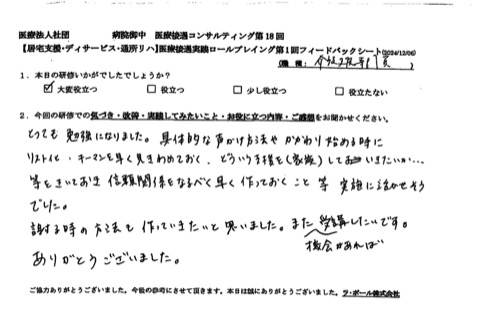 医療法人社団　　　　病院御中　医療接遇コンサルティング第18回
【居宅支援・デイサービス・通所リハ】医療接遇実践ロールプレイング第1回フィードバックシート(2024/12/06)
(職種：　　　　)
1．本日の研修いかがでしたでしょうか？
☑ 大変役立つ　□ 役立つ　□ 少し役立つ　□ 役立たない
2．今回の研修での気づき・改善・実践してみたいこと・お役に立つ内容・ご感想をお聞かせください。
とても勉強になりました。具体的な声がけ方法やかかわり始める時に
リスト化・キーマンを早く見きわめておく、どういう支援を(家族)していきたいか…
等をきいておき信頼関係をなるべく早く作っておくこと等 実施に活かせそう
でした。
謝る時の方法も作っていきたいと思いました。また受講したいです。
機会があれば
ありがとうございました。
ご協力ありがとうございました。今後の参考にさせて頂きます。本日は誠にありがとうございました。ラ・ポール株式会社